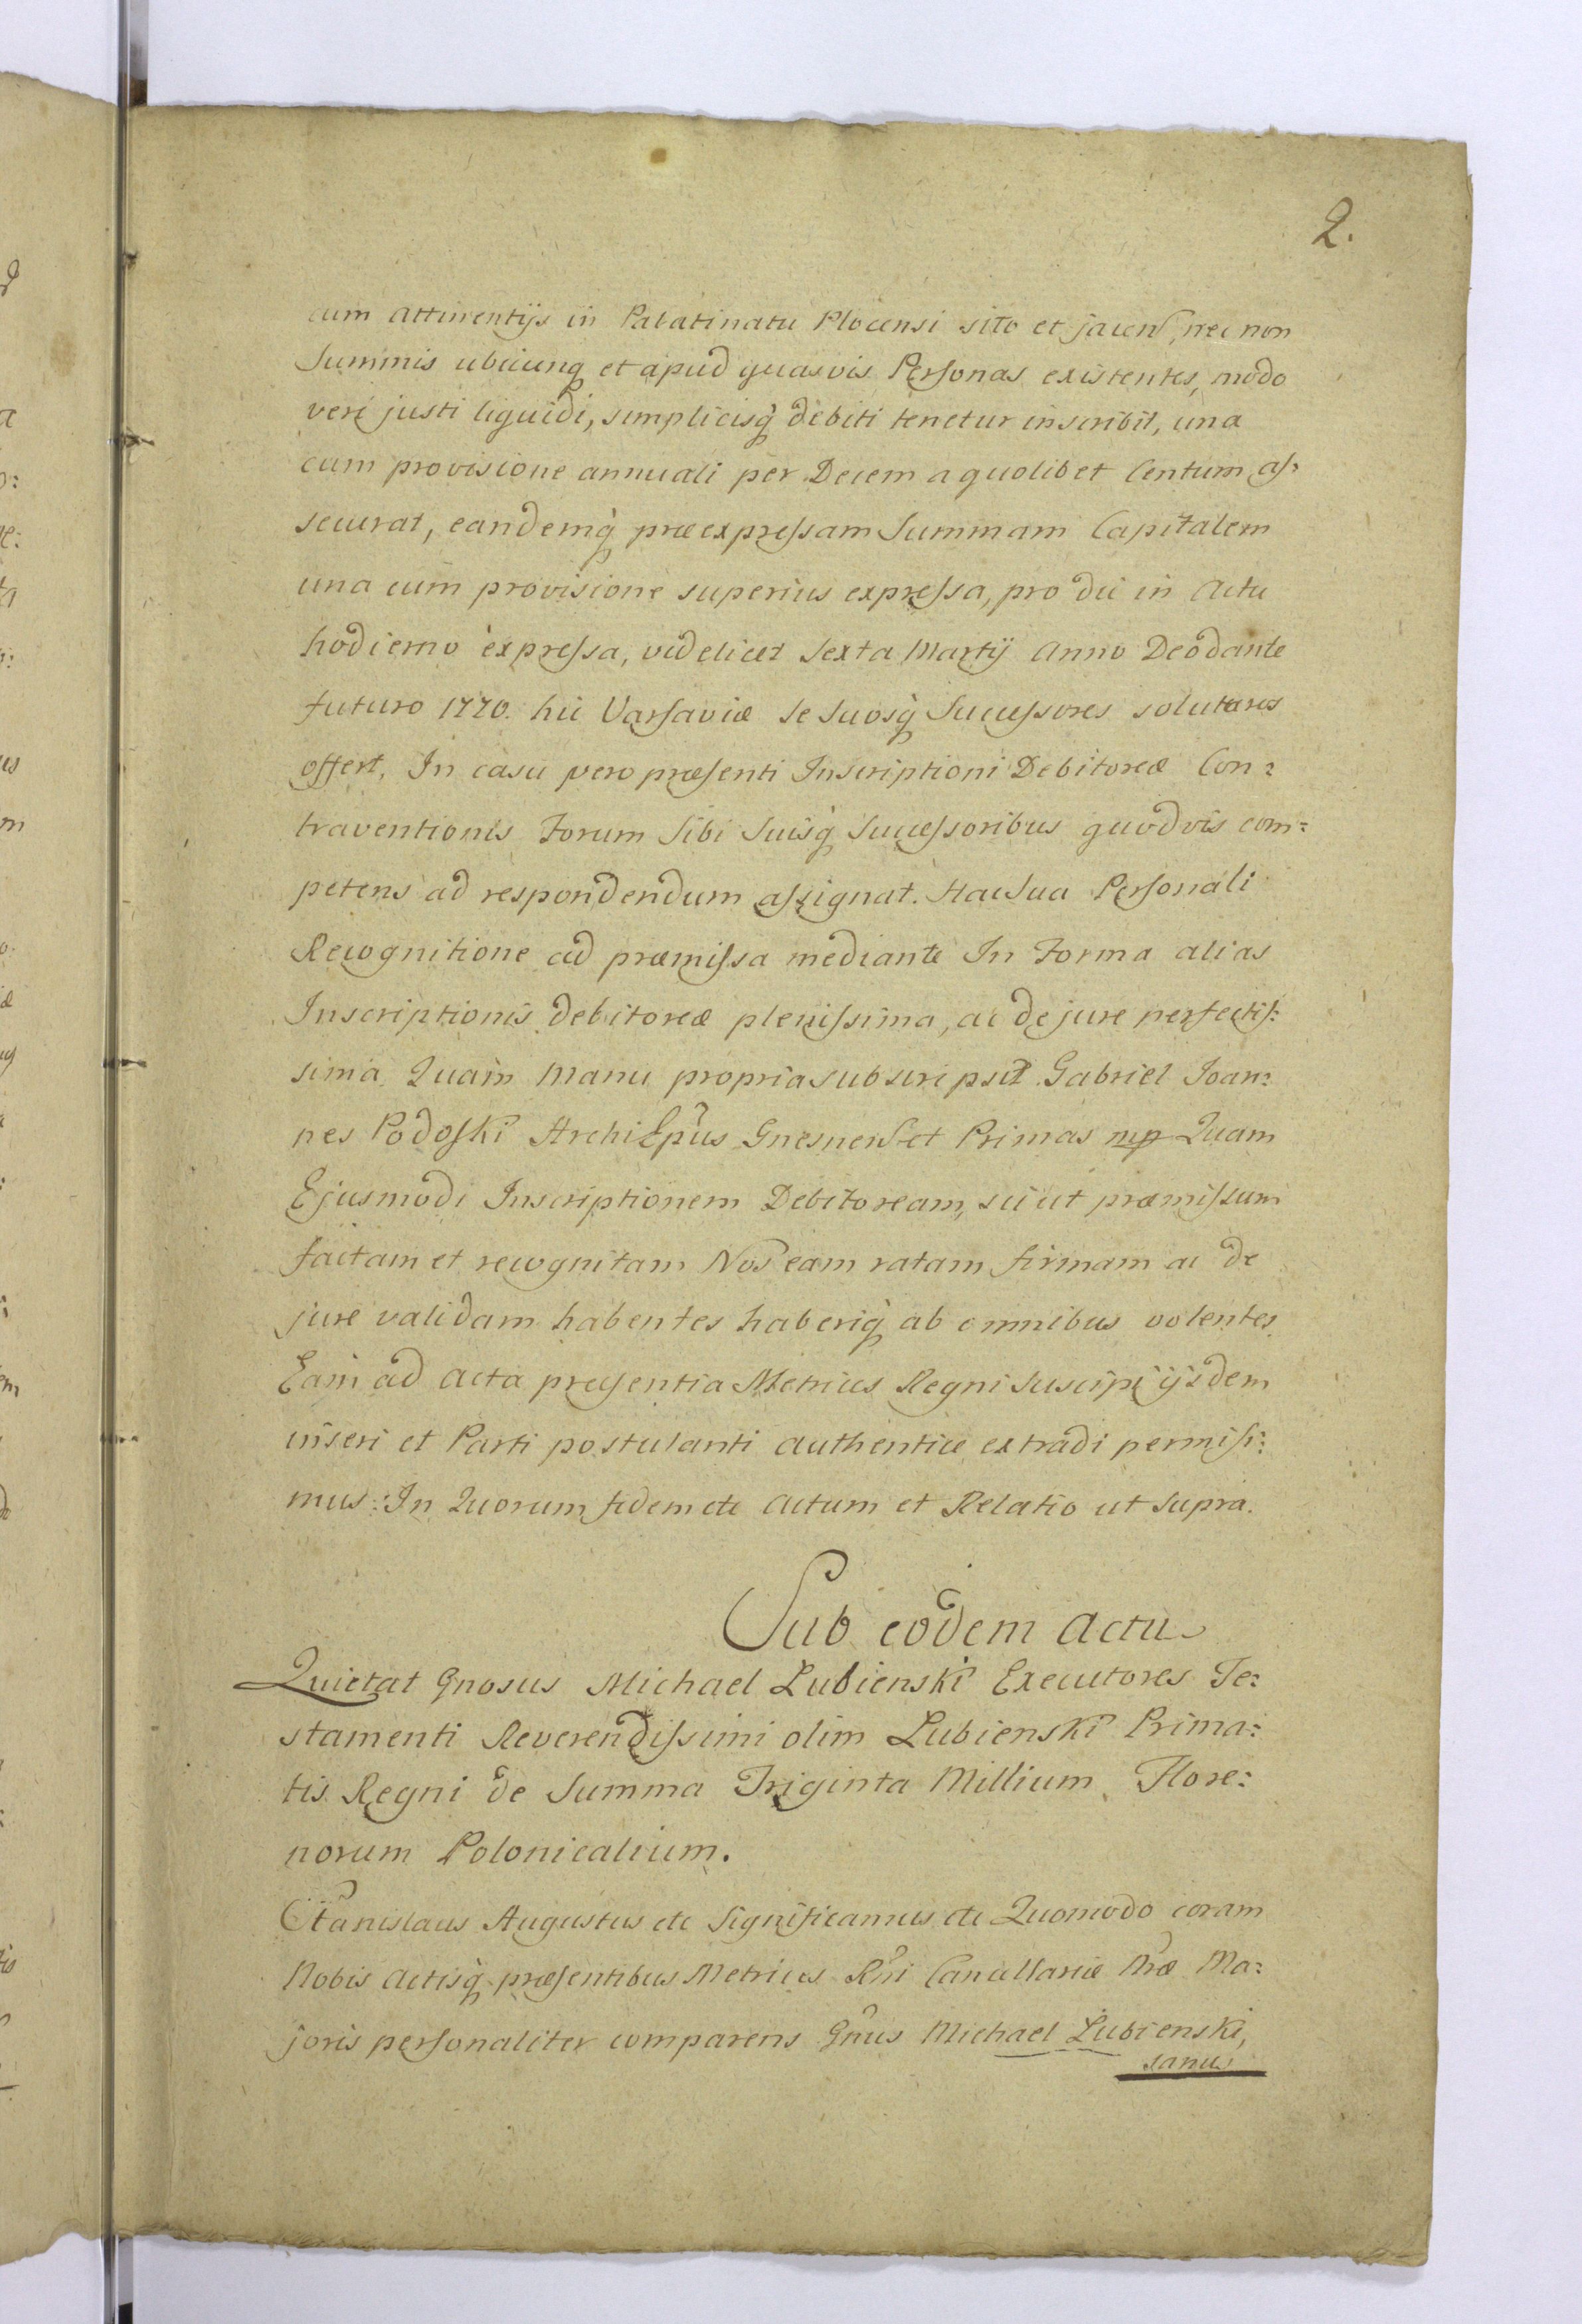 2.
cum attinentijs in Palatinatu Plocensi sito et jacen, nec non
Summis ubicunq et apud quasvis Personas existentes, modo
veri justi liquidi, simplicisq̀ debiti tenetur inscribit, una
cum provisione annuali per Decem a quolibet Centum as:
securat, eandemq̀ præexpressam Summam Capitalem
una cum provisione superius expressa, pro die in Actu
hodierno expressa, videlicet Sexta Martij Anno Deo dante
futuro 1770. hic Varsaviæ se suosq̀ Successores soluturos
offert, In casu vero præsenti Inscriptioni Debitoreæ Con:
traventionis Forum Sibi Suisq̀ Successoribus quodvis com:
petens ad respondendum assignat. Hac Sua Personali
Recognitione ad præmissa mediante In Forma alias
Inscriptionis debitoreæ plenissima, ac de jure perfectis:
sima. Quam Manu propria subscripsit Gabriel Joan:
nes Podoski ArchiEpũs Gnesnens et Primas mp Quam
Ejusmodi Inscriptionem Debitoream, sic ut præmissum
factam et recognitam Nos eam ratam firmam ac de
jure validam habentes haberiq̀ ab omnibus volentes
Eam ad Acta præsentia Metrices Regni suscipi ijsdem
inseri et Parti postulanti authentice extradi permisi:
mus: In Quorum fidem etc Actum et Relatio ut supra.
Sub eodem Actu
Quietat Gnosus Michael Lubienski Executores Te:
stamenti Reverendissimi olim Lubienski Prima:
tis Regni de Summa Triginta Millium Flore:
norum Polonicalium.
Stanislaus Augustus etc Significamus etc Quomodo coram
Nobis Actisq̀ præsentibus Metrices Rñi Cancellariæ Nræ Ma:
joris personaliter comparens Gnus Michael Lubienski,
sanus